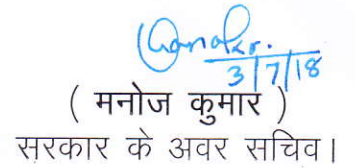 3/7/18
( मनोज कुमार )
सरकार के अवर सचिव।